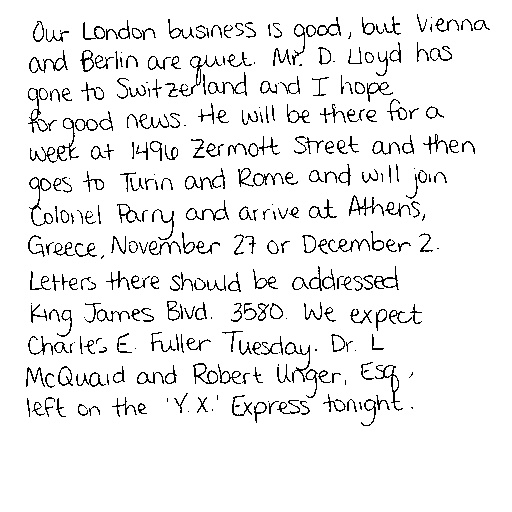 Our London business is good, but Vienna
and Berlin are quiet. Mr. D. Lloyd has
gone to Switzerland and I hope
for good news. He will be there for a
week at 1496 Zermott Street and then
goes to Turin and Rome and will join
Colonel Parry and arrive at Athens,
Greece, November 27 or December 2.
Letters there should be addressed
King James Blvd. 3580. We expect
Charles E. Fuller Tuesday. Dr. L
McQuaid and Robert Unger, Esq,
left on the 'Y.X.' Express tonight.